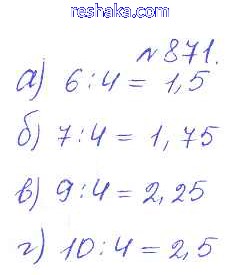 reshaka.com
№871.
а) 6:4 = 1,5
б) 7:4 = 1,75
в) 9:4 = 2,25
г) 10:4 = 2,5